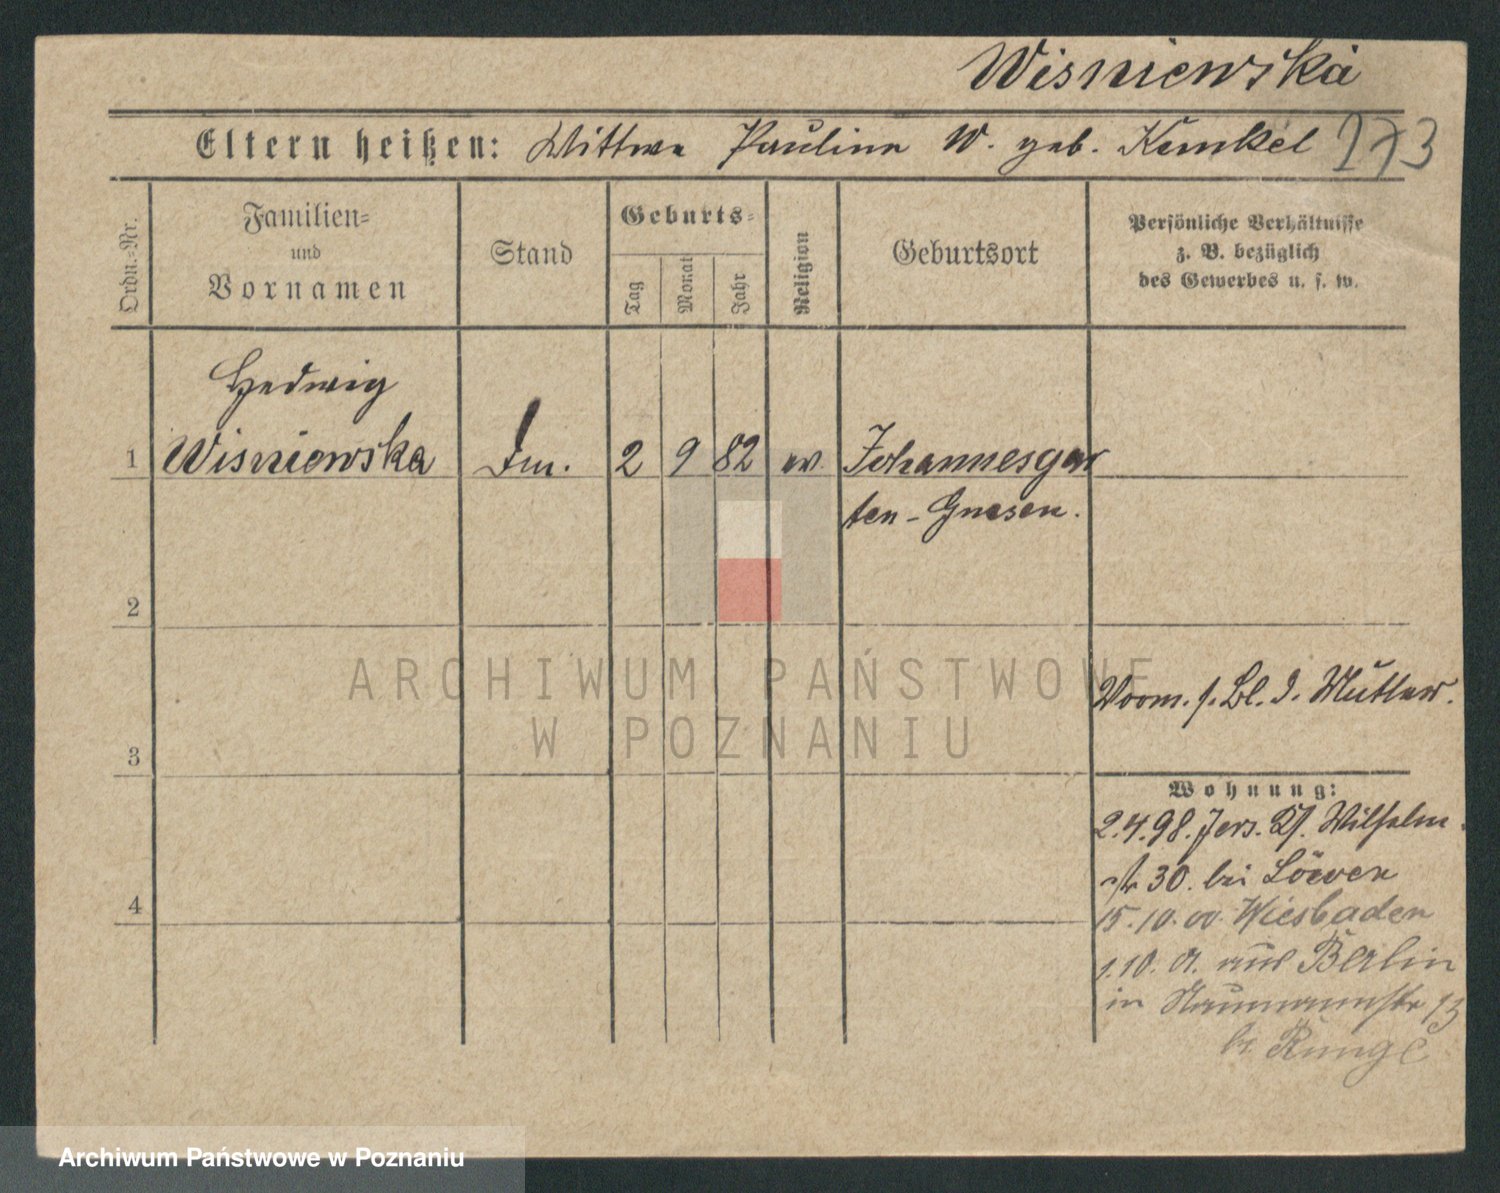 Wisniewska
Eltern heißen: Wittwe Pauline W. geb. Kunkel 273
Ordn.-Nr.
Familien-
und
Vornamen
Stand
Geburts-
Tag
Monat
Jahr
Religion
Geburtsort
Persönliche Verhältnisse
z. B. bezüglich
des Gewerbes u. s. w.
Hedwig
1 Wisniewska 2 9 82 ev. Johannesgar
ten - Gnesen.
2
ARCHIWUM PAŃSTWOWE
W POZNANIU
Vorm. s. Bl. d. Mutter.
3
Wohnung:
2.4.98. Jers. Wilhelm
str 30. bei Löwen
4
15.10.00 Wiesbaden
1.10.01. aus Berlin
in Naumannstr 13
b. Runge
Archiwum Państwowe w Poznaniu